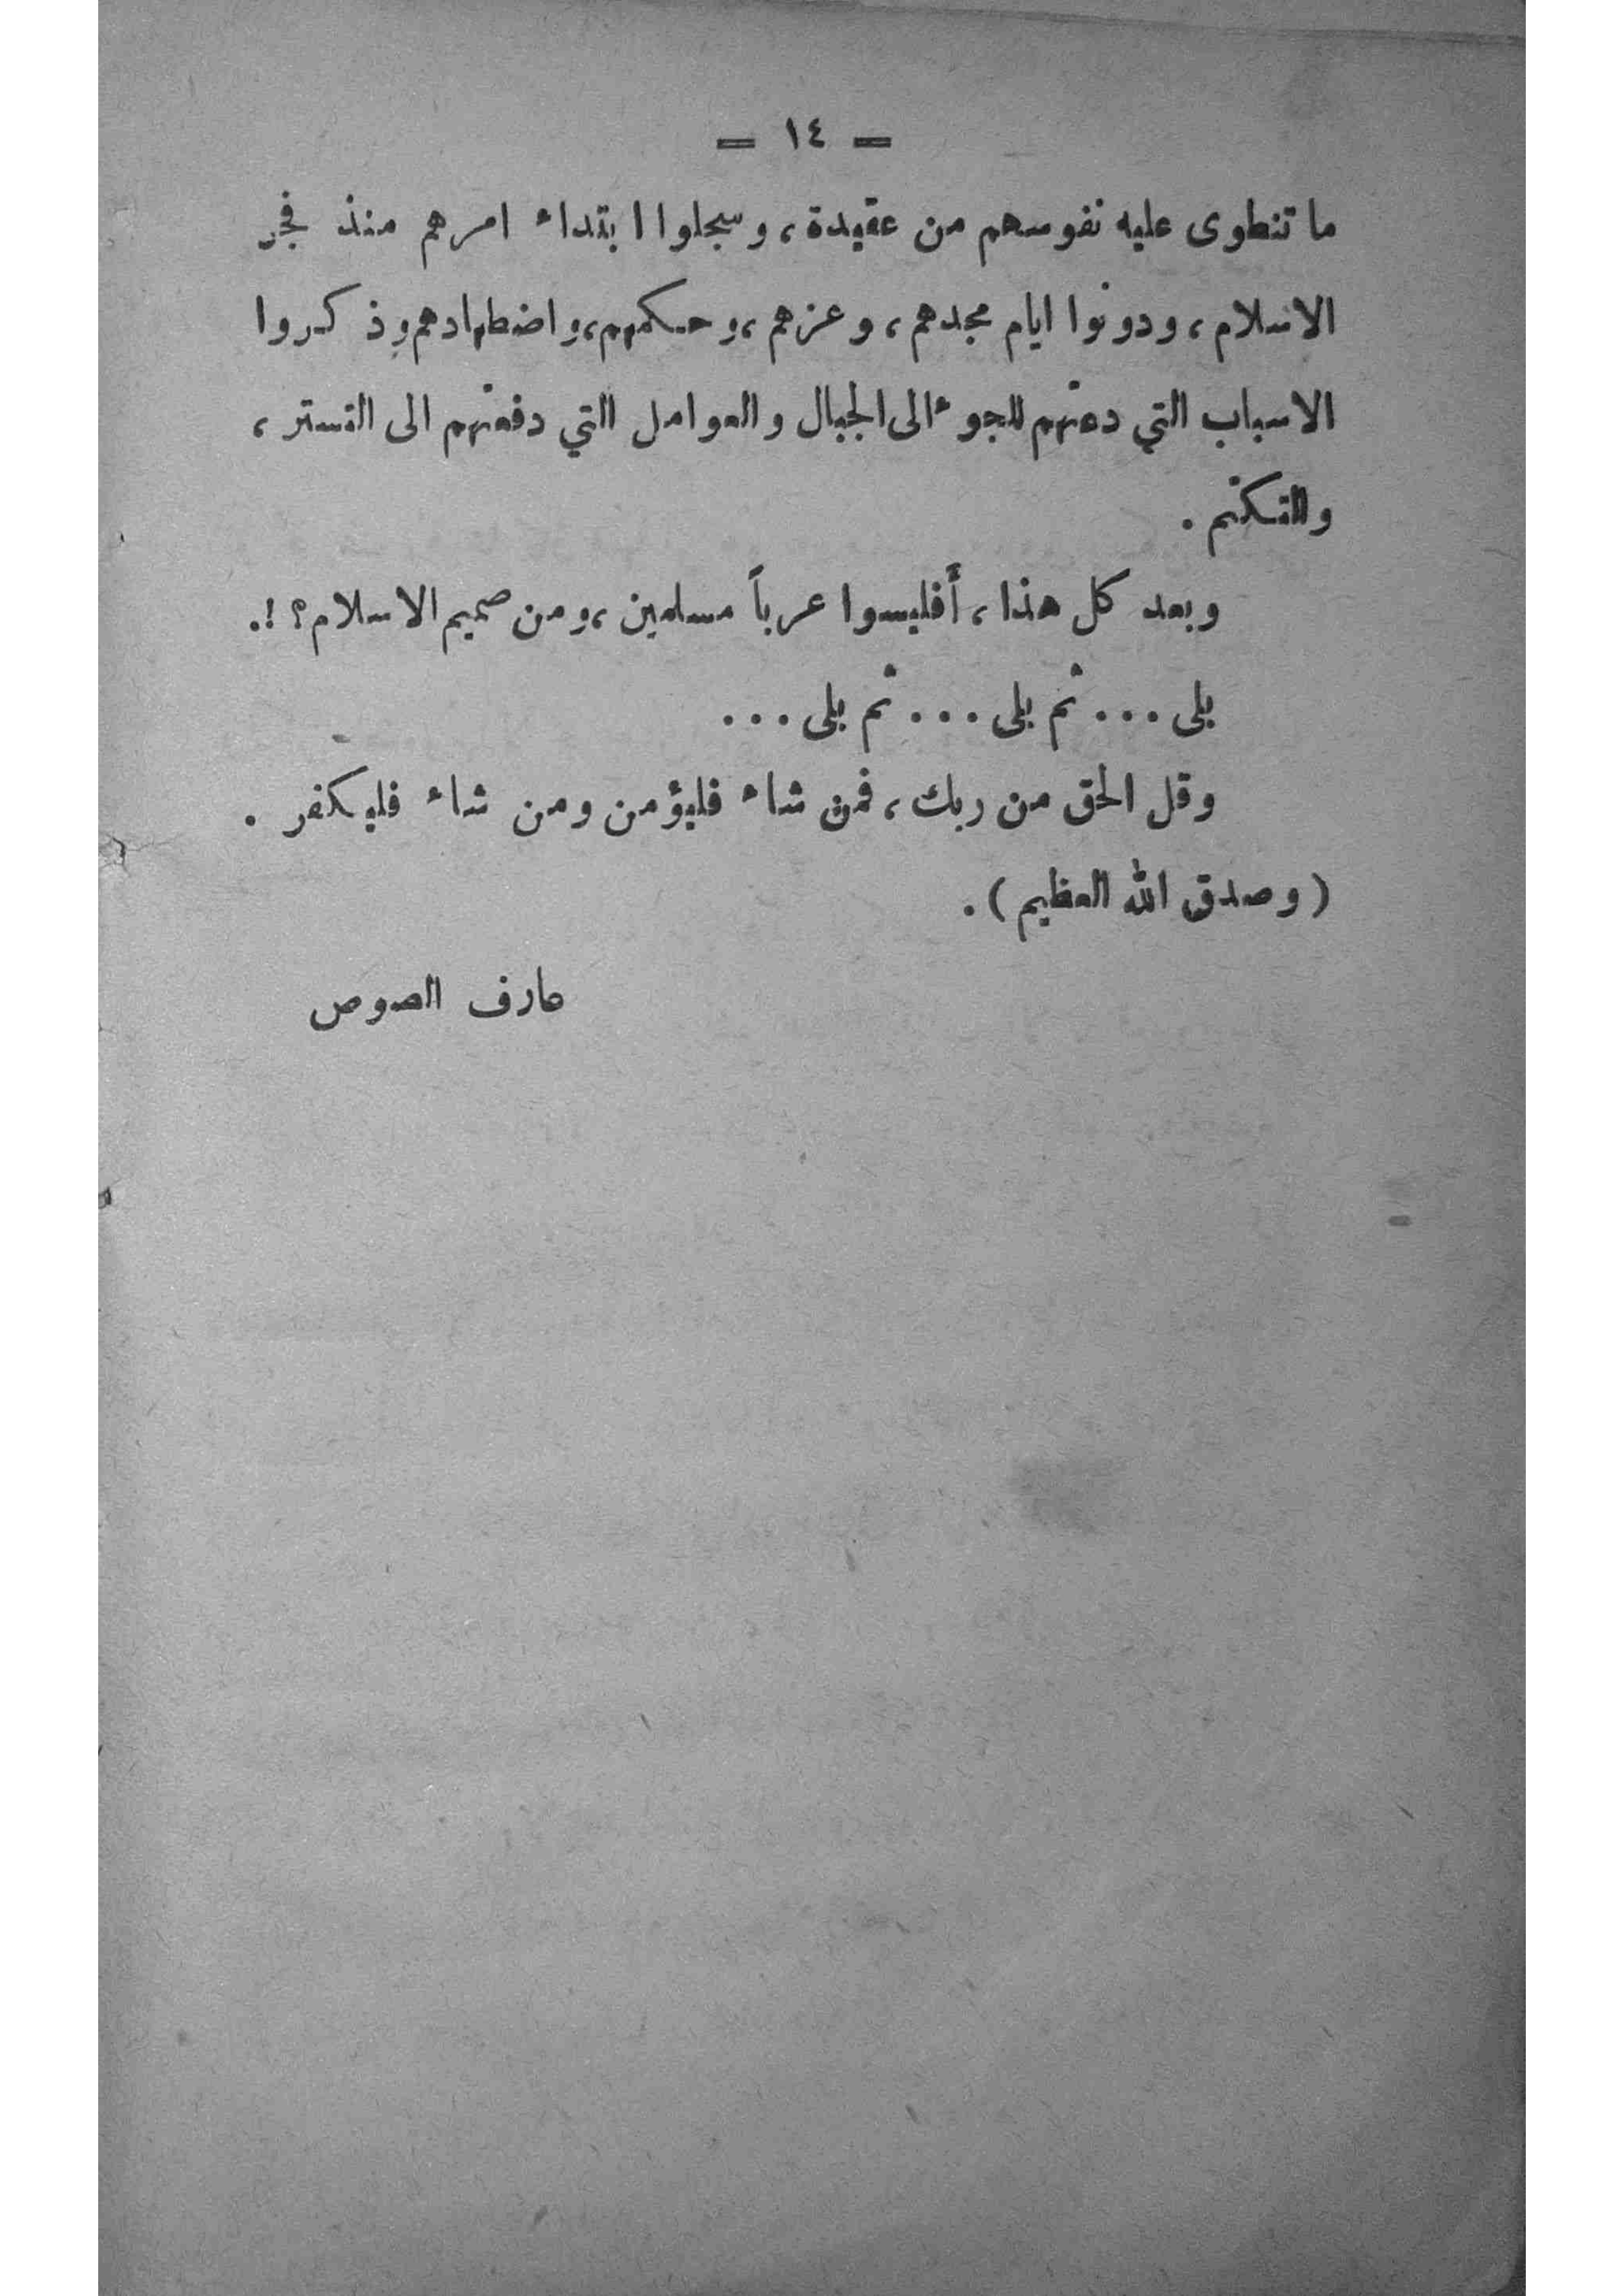 = ١٤ =
ما تنطوى عليه نفوسهم من عقيدة، وسجلوا ابتداء امرهم منذ فجر
الاسلام، ودونوا ايام مجدهم، وعزهم، وحكمهم، واضطهادهم وذكروا
الاسباب التي دعتهم للجوء الى الجبال والعوامل التي دفعتهم الى التستر،
والتكتم .
وبعد كل هذا، أفليسوا عرباً مسلمين، ومن صميم الاسلام؟!.
بلى ... ثم بلى ... ثم بلى ...
وقل الحق من ربك، فمن شاء فليؤمن ومن شاء فليكفر .
( وصدق الله العظيم ) .
عارف الصوص